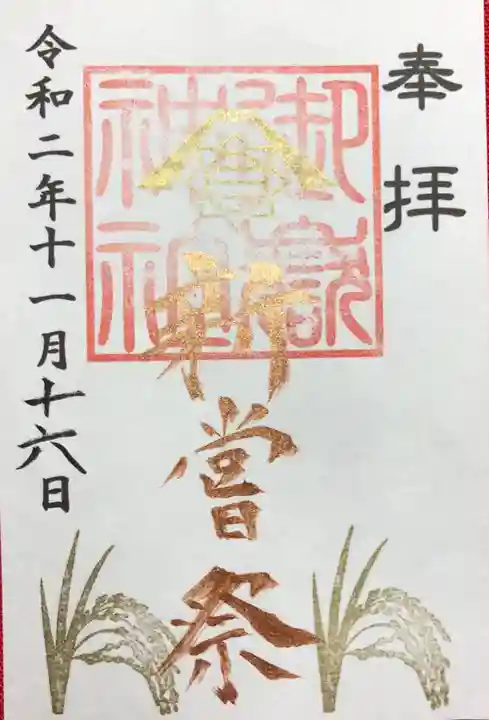 奉拝
新嘗祭
令和二年十一月十六日